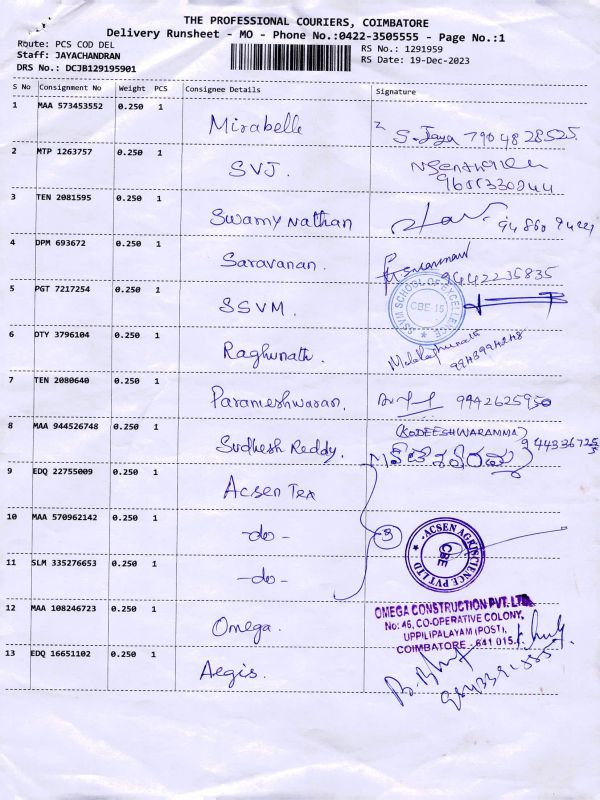 THE PROFESSIONAL COURIERS, COIMBATORE
Delivery Runsheet - MO - Phone No.:0422-3505555 - Page No.:1
Route: PCS COD DEL
RS No.: 1291959
Staff: JAYACHANDRAN
RS Date: 19-Dec-2023
DRS No.: DCJB129195901
S No Consignment No Weight PCS Consignee Details Signature
1 MAA 573453552 0.250 1 Mirabelle S. Jaya 7904828525
2 MTP 1263757 0.250 1 SVJ.
3 TEN 2081595 0.250 1 Swamy Nathan
4 DPM 693672 0.250 1 Saravanan. 9442235835
5 PGT 7217254 0.250 1 SSVM. SSVM SCHOOL OF EXCELLENCE CBE-15
6 DTY 3796104 0.250 1 Raghunath.
7 TEN 2080640 0.250 1 Parameshwaran. 9942625950
8 MAA 944526748 0.250 1 Sudhesh Reddy. (KODEESHWARAMMA)
9 EDQ 22755009 0.250 1 Acsen Tex
10 MAA 570962142 0.250 1 -do- 3
11 SLM 335276653 0.250 1 -do- ACSEN AGRISCIENCE PVT LTD CBE
12 MAA 108246723 0.250 1 Omega.
OMEGA CONSTRUCTION PVT. LTD.
No: 46, CO-OPERATIVE COLONY,
UPPILIPALAYAM (POST),
COIMBATORE - 641 015.
13 EDQ 16651102 0.250 1 Aegis.